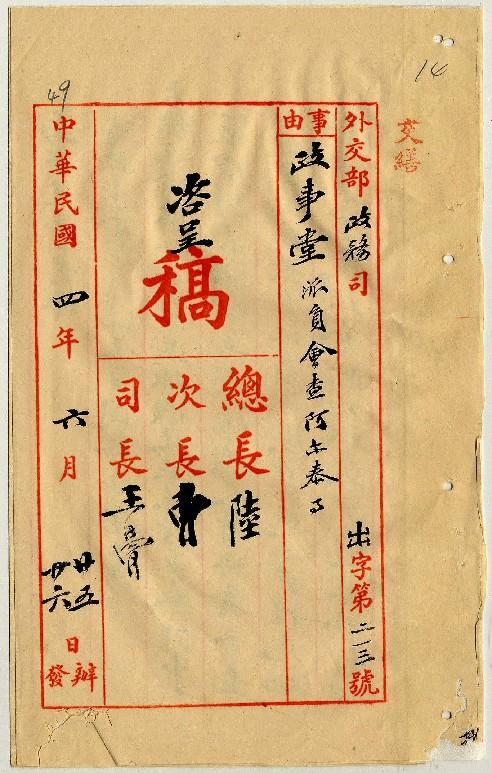 14
交繕
外交部政務司 出字第二一三號
事由
政事堂 派員會查阿尔泰事
咨呈
稿
總長 陸
次長 曹
司長 王
49
中華民國四年六月
廿五日辦
廿六日發